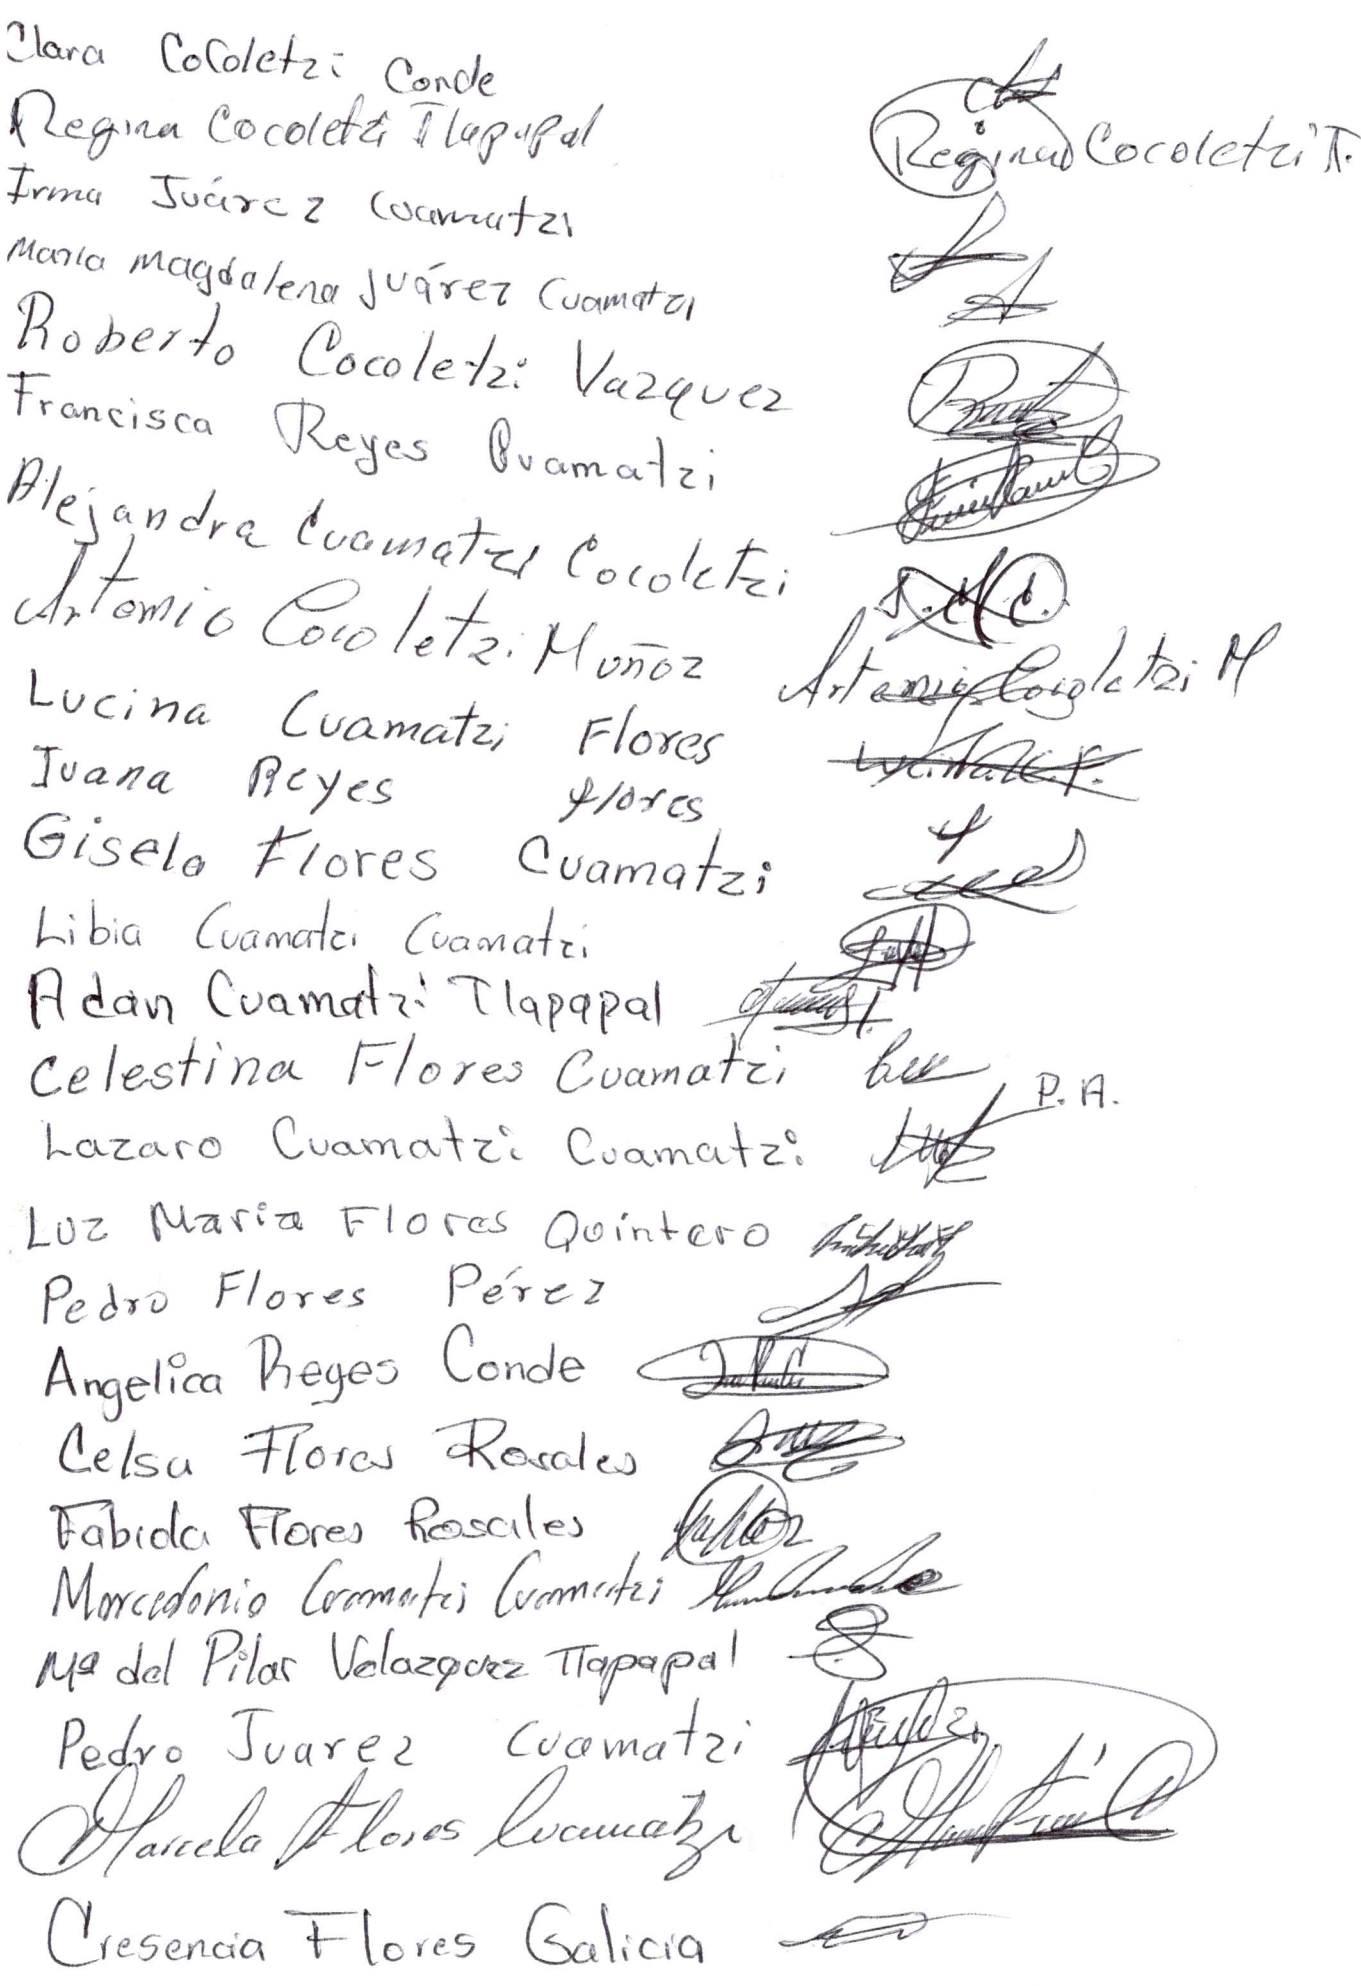 Clara Cocoletzi Conde
Regina Cocoletzi Tlapapal Regina Cocoletzi T.
Irma Juárez Cuamatzi
Maria Magdalena Juárez Cuamatzi
Roberto Cocoletzi Vazquez
Francisca Reyes Cuamatzi
Alejandra Cuamatzi Cocoletzi
Artomio Cocoletzi Muñoz Artemio Cocoletzi M
Lucina Cuamatzi Flores Lucina C. F.
Juana Reyes flores
Gisela Flores Cuamatzi
Libia Cuamatzi Cuamatzi
Adan Cuamatzi Tlapapal
Celestina Flores Cuamatzi
P. A.
Lazaro Cuamatzi Cuamatzi
Luz Maria Flores Quintero
Pedro Flores Pérez
Angelica Reyes Conde
Celsa Flores Rosales
Fabiola Flores Rosales
Marcedonio Cuamatzi Cuamatzi
Mª del Pilar Velazquez Tlapapal
Pedro Juarez Cuamatzi
Marcela Flores Cuamatzi
Cresencia Flores Galicia